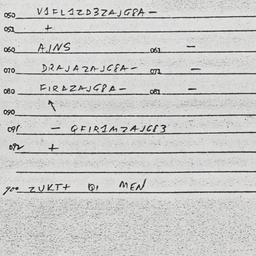 050 V1FL1ZD3ZAJG8A —
051 +
060 AJNS 061 —
070 DRAJAZAJG8A — 071 —
080 FIRAZAJG8A — 081 —
090
091 — QFIR1MZAJG83
092 +
900 ZUKT+ QI MEN